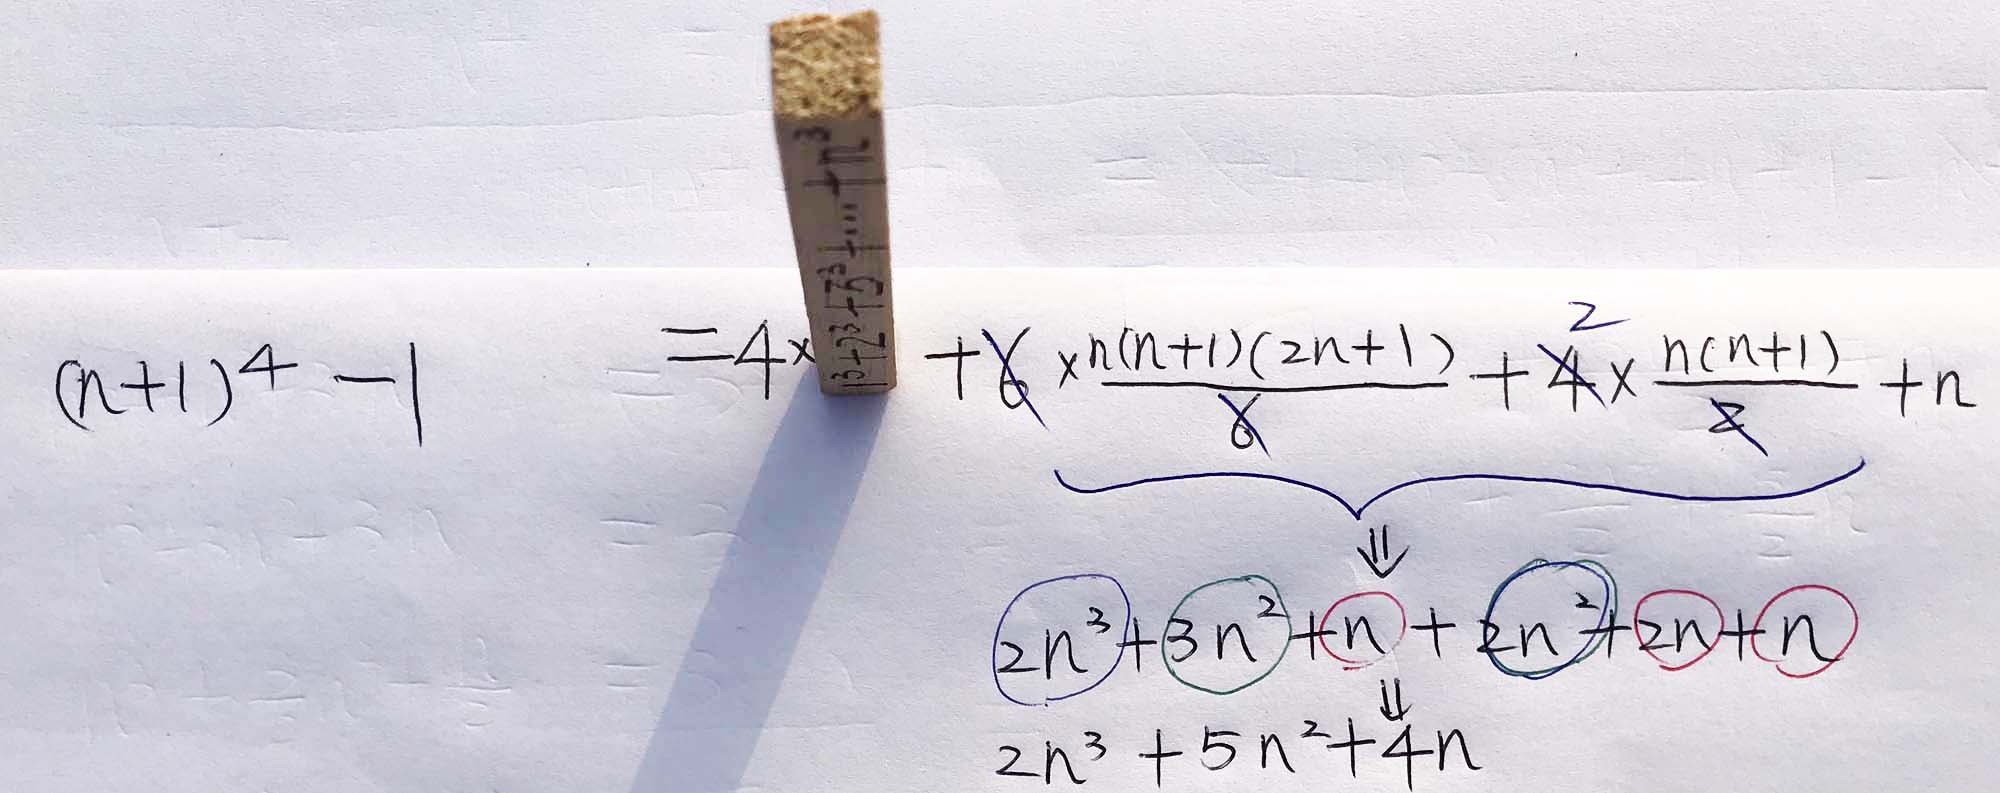 (n+1)⁴ - 1 = 4 × 1³+2³+3³+...+n³ + 6 × n(n+1)(2n+1)/6 + 4 × n(n+1)/2 + n
2
2n³ + 3n² + n + 2n² + 2n + n
2n³ + 5n² + 4n